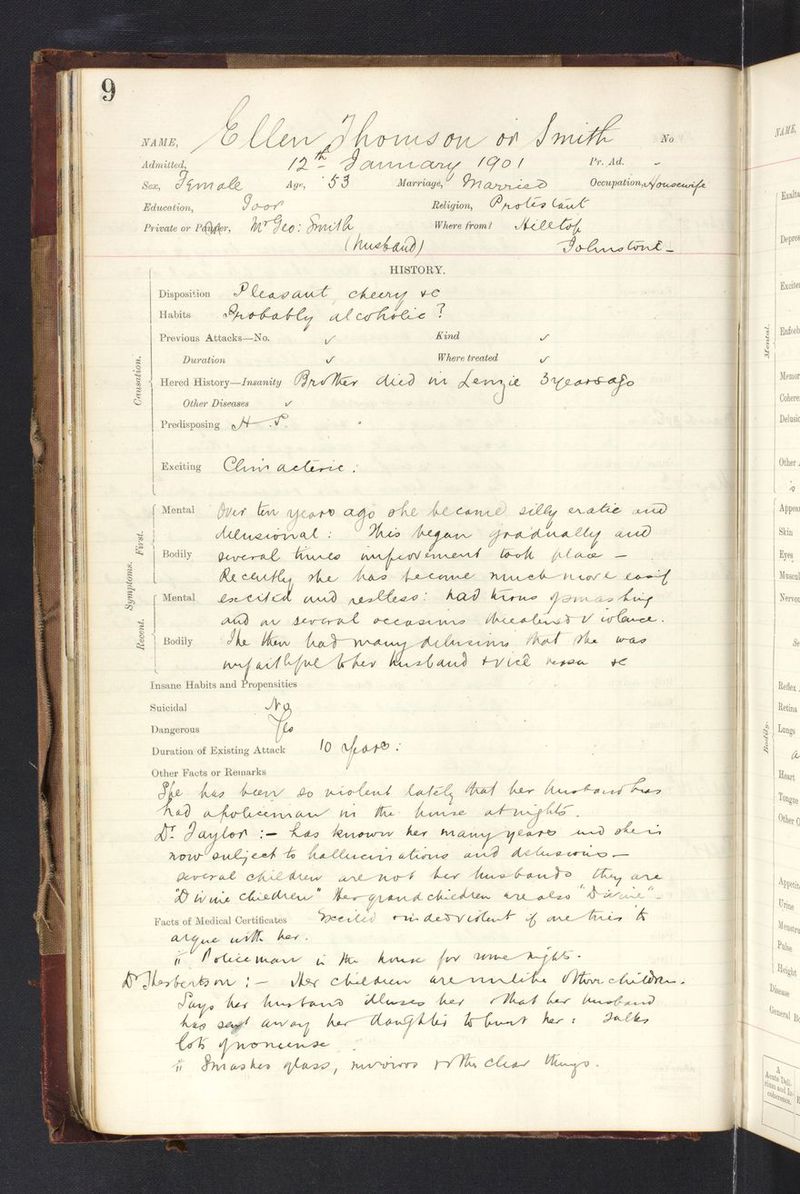 9
NAME, Ellen Thomson or Smith No
Admitted, 12th January 1901 Pr. Ad. -
Sex, Female Age, 53 Marriage, Married Occupation, Housewife
Education, Poor Religion, Protestant
Private or Pauper, Mr Geo: Smith Where from? Hilltop
(husband) Johnstone -
HISTORY.
Disposition Pleasant cheery &c
Habits Probably alcoholic ?
Previous Attacks—No. ✓ Kind ✓
Duration ✓ Where treated ✓
Hered History—Insanity Brother died in Lenzie 3 years ago
Other Diseases ✓
Predisposing H.P.
Exciting Climacteric.
Causation.
Mental Over ten years ago she became silly eratic and
delusional : This began gradually and
Bodily several times improvement took place —
Recently she has become much more easily
Mental excited and restless: had turns of smashing
and on several occasions threatened violence.
Bodily She then had many delusions that she was
unfaithful to her husband & vice versa &c
Symptoms.
First.
Recent.
Insane Habits and Propensities
Suicidal No
Dangerous Yes
Duration of Existing Attack 10 years :
Other Facts or Remarks
She has been so violent lately that her husband has
had a policeman in the house at nights.
Dr Taylor :- has known her many years and she is
now subject to hallucinations and delusions —
several children are not her husbands they are
"Divine children" Her grandchildren are also "Divine" -
Facts of Medical Certificates Excited & indeed violent if one tries to
argue with her.
ii Policeman in the house for some nights.
Dr Herbertson :- Her children are unlike other children.
Says her husband illuses her & that her husband
has sent away her daughter to hurt her : Talks
lots of nonsense
ii Smashes glass, mirrors & other clear things.
NAME,
Mental.
Memor
Cohere
Delusio
Other
Appear
Skin
Eyes
Muscul
Nervou
Reflex
Retina
Lungs
Bodily.
Heart
Tongue
Other O
Appetit
Urine
Menstru
Pulse
Height
Disease
General Bo